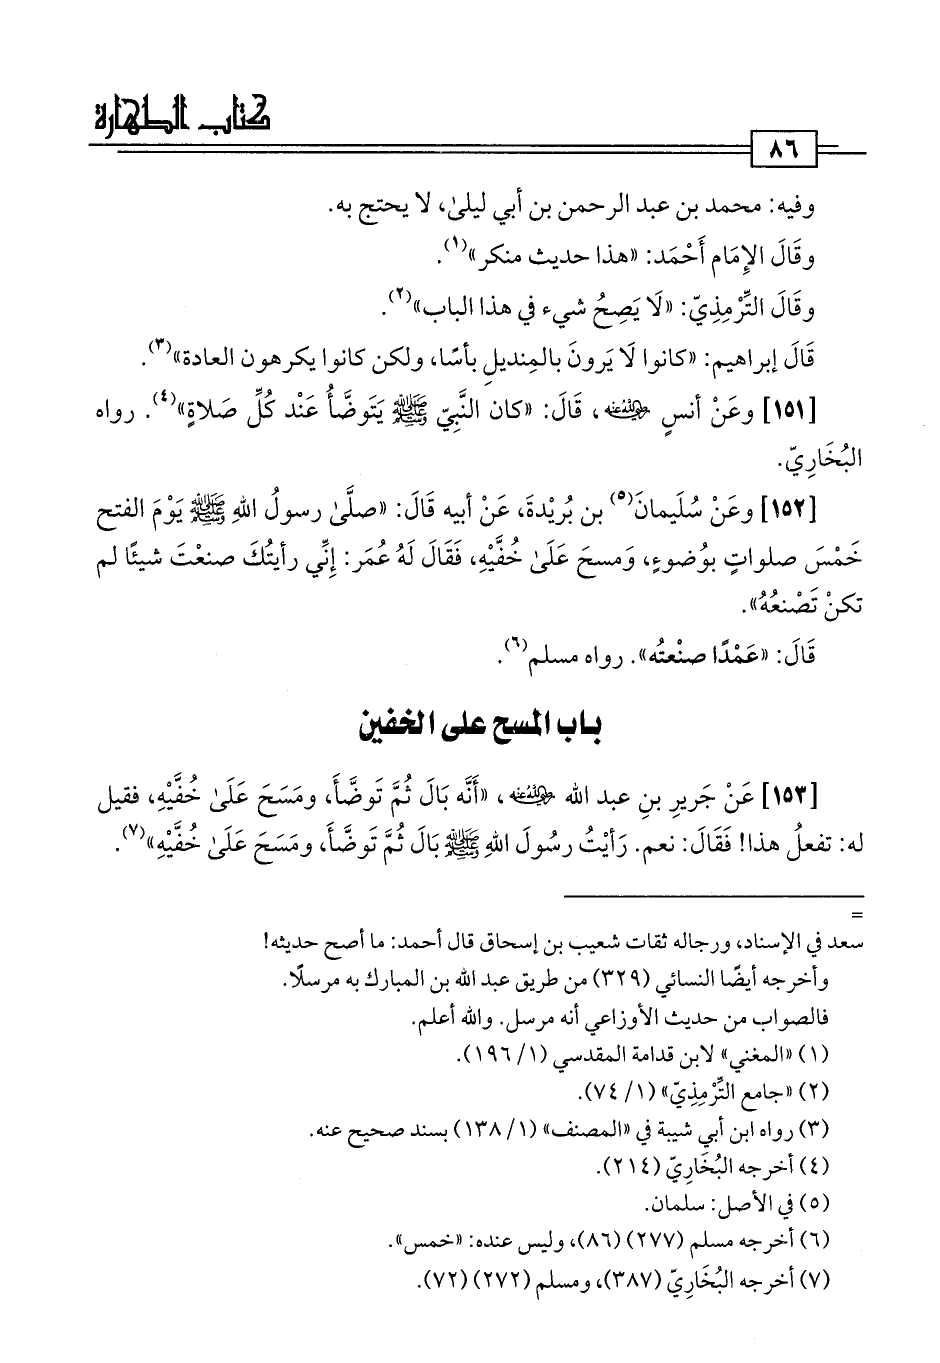 كتاب الطهارة
٨٦
وفيه: محمد بن عبد الرحمن بن أبي ليلىٰ، لا يحتج به.
وقَالَ الإِمَام أَحْمَد: «هذا حديث منكر»(١).
وقَالَ التِّرْمِذِيّ: «لَا يَصِحُ شيء في هذا الباب»(٢).
قَالَ إبراهيم: «كانوا لَا يَرونَ بالمِنديلِ بأسًا، ولكن كانوا يكرهون العادة»(٣).
[١٥١] وعَنْ أنسٍ رضي الله عنه، قَالَ: «كان النَّبِيّ ﷺ يَتوَضَّأُ عَنْد كُلِّ صَلاةٍ»(٤). رواه
البُخَارِيّ.
[١٥٢] وعَنْ سُلَيمانَ(٥) بن بُرَيْدةَ، عَنْ أبيه قَالَ: «صلَّىٰ رسولُ اللهِ ﷺ يَوْمَ الفتح
خَمْسَ صلواتٍ بوُضوءٍ، وَمسحَ عَلَىٰ خُفَّيْهِ، فَقَال لَهُ عُمَر: إنِّي رأيتُكَ صنعْتَ شيئًا لم
تكنْ تَصْنعُهُ».
قَالَ: «عَمْدًا صنعْته». رواه مسلم(٦).
باب المسح على الخفين
[١٥٣] عَنْ جَريرِ بنِ عبد الله رضي الله عنه، «أَنَّه بَالَ ثُمَّ تَوضَّأَ، ومَسَحَ عَلَىٰ خُفَّيْهِ، فقيل
له: تفعلُ هذا! فَقَالَ: نعم. رَأيْتُ رسُولَ اللهِ ﷺ بَالَ ثُمَّ تَوضَّأَ، ومَسَحَ عَلَىٰ خُفَّيْهِ»(٧).
=
سعد في الإسناد، ورجاله ثقات شعيب بن إسحاق قال أحمد: ما أصح حديثه!
وأخرجه أيضًا النسائي (٣٢٩) من طريق عبد الله بن المبارك به مرسلًا.
فالصواب من حديث الأوزاعي أنه مرسل. والله أعلم.
(١) «المغني» لابن قدامة المقدسي (١/ ١٩٦).
(٢) «جامع التِّرْمِذِيّ» (١/ ٧٤).
(٣) رواه ابن أبي شيبة في «المصنف» (١/ ١٣٨) بسند صحيح عنه.
(٤) أخرجه البُخَارِيّ (٢١٤).
(٥) في الأصل: سلمان.
(٦) أخرجه مسلم (٢٧٧) (٨٦)، وليس عنده: «خمس».
(٧) أخرجه البُخَارِيّ (٣٨٧)، ومسلم (٢٧٢) (٧٢).